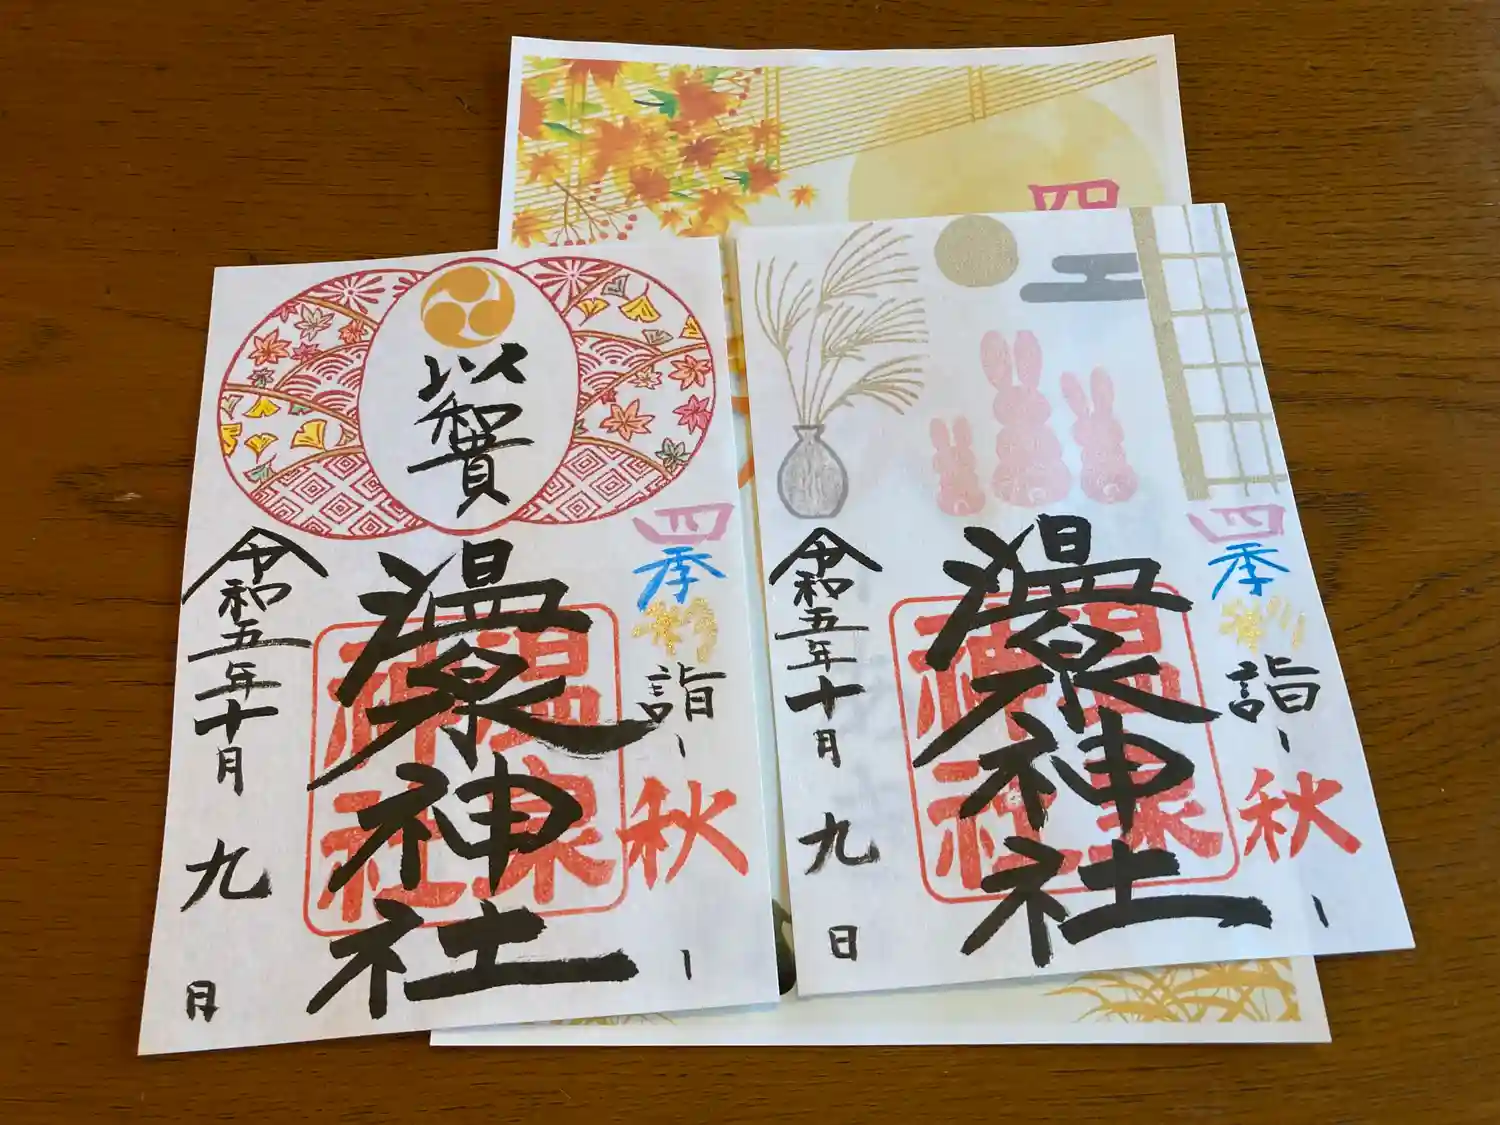 四
以
智
賀
四季彩詣〜秋〜
温泉神社
温泉神社
令和五年十月九日
四季彩詣〜秋〜
温泉神社
温泉神社
令和五年十月九日